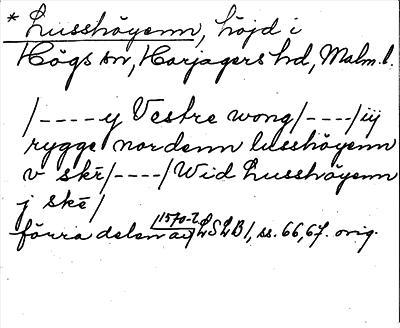 * Lusshöyenn, höjd i
Högs sn, Harjagers hd, Malm.l.
/----y Vestre wong/----/iij
rygge nordenn lusshöyenn
v skē/----/Wid Lusshöyenn
j skē/
förra delen av LSLB1, ss. 66,67. orig.